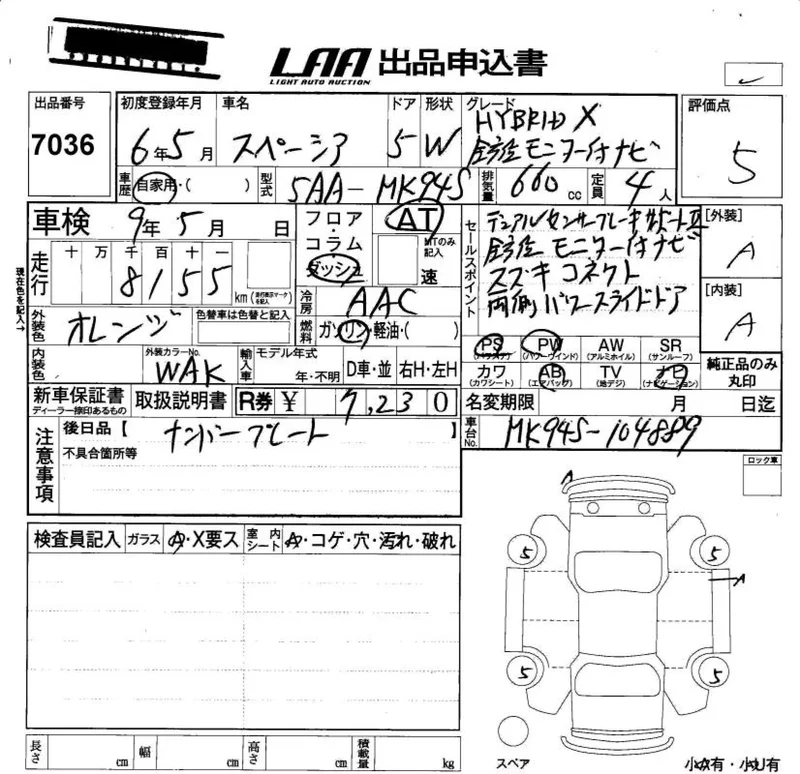 LAA 出品申込書
LIGHT AUTO AUCTION
出品番号 初度登録年月 車名 ドア 形状 グレード 評価点
7036 6年5月 スペーシア 5 W HYBRID X 5
全方位モニター付ナビ
車歴 自家用・( ) 型式 5AA-MK94S 排気量 660cc 定員 4人
車検 9年5月 日
フロア・コラム・ダッシュ
AT
MTのみ記入 速
セールスポイント
デュアルセンサーブレーキサポートII
全方位モニター付ナビ
スズキコネクト
両側パワースライドドア
[外装]
A
[内装]
A
走行 十 万 千 百 十 一
8155 km (走行表示マークを記入)
現在色を記入→
冷房 AAC
外装色 オレンジ 色替車は色替と記入
燃料 ガソリン・軽油・( )
PS (パワステ) PW (パワーウインド) AW (アルミホイル) SR (サンルーフ)
カワ (カワシート) AB (エアバッグ) TV (地デジ) ナビ (ナビゲーション)
純正品のみ丸印
内装色 外装カラーNo. WAK 輸入車 モデル年式 年・不明 D車・並 右H・左H
新車保証書 ディーラー捺印あるもの 取扱説明書 R券 ¥ 7,230
名変期限 月 日迄
車台No. MK94S-104889
注意事項 後日品【 ナンバープレート 】
不具合箇所等
ロック車
検査員記入 ガラス A・X要ス 室内シート A・コゲ・穴・汚れ・破れ
A
5 5
A
5 5
スペア
長さ cm 幅 cm 高さ cm 積載量 kg